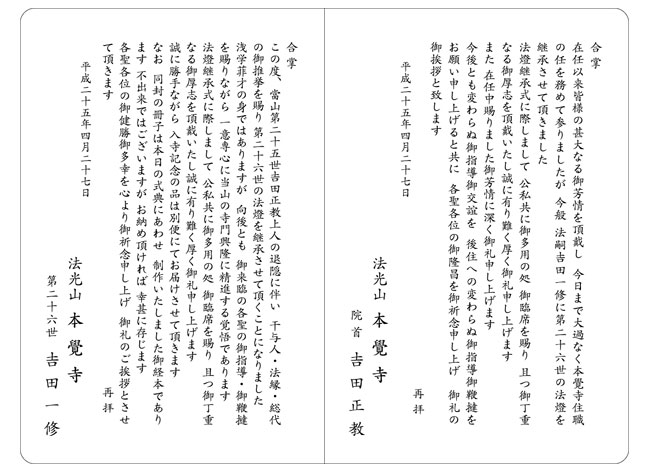 合掌
在任以来皆様の甚大なる御芳情を頂戴し 今日まで大過なく本覺寺住職
の任を務めて参りましたが 今般 法嗣吉田一修に第二十六世の法燈を
継承させて頂きました
法燈継承式に際しまして 公私共に御多用の処 御臨席を賜り 且つ御丁重
なる御厚志を頂戴いたし誠に有り難く厚く御礼申し上げます
また 在任中賜りました御芳情に深く御礼申し上げます
今後とも変わらぬ御指導御交誼を 後住への変わらぬ御指導御鞭撻を
お願い申し上げると共に 各聖各位の御隆昌を御祈念申し上げ 御礼の
御挨拶と致します
再拝
平成二十五年四月二十七日
法光山 本覺寺
院首 吉田正教
合掌
この度、當山第二十五世吉田正教上人の退隠に伴い 干与人・法縁・総代
の御推挙を賜り 第二十六世の法燈を継承させて頂くことになりました
浅学菲才の身ではありますが 向後とも 御来臨の各聖の御指導・御鞭撻
を賜りながら 一意専心に当山の寺門興隆に精進する覚悟であります
法燈継承式に際しまして 公私共に御多用の処 御臨席を賜り 且つ御丁重
なる御厚志を頂戴いたし誠に有り難く厚く御礼申し上げます
誠に勝手ながら 入寺記念の品は別便にてお届けさせて頂きます
なお 同封の冊子は本日の式典にあわせ 制作いたしました御経本であり
ます 不出来ではございますが お納め頂ければ 幸甚に存じます
各聖各位の御健勝御多幸を心より御祈念申し上げ 御礼のご挨拶とさせ
て頂きます
再拝
平成二十五年四月二十七日
法光山 本覺寺
第二十六世 吉田一修